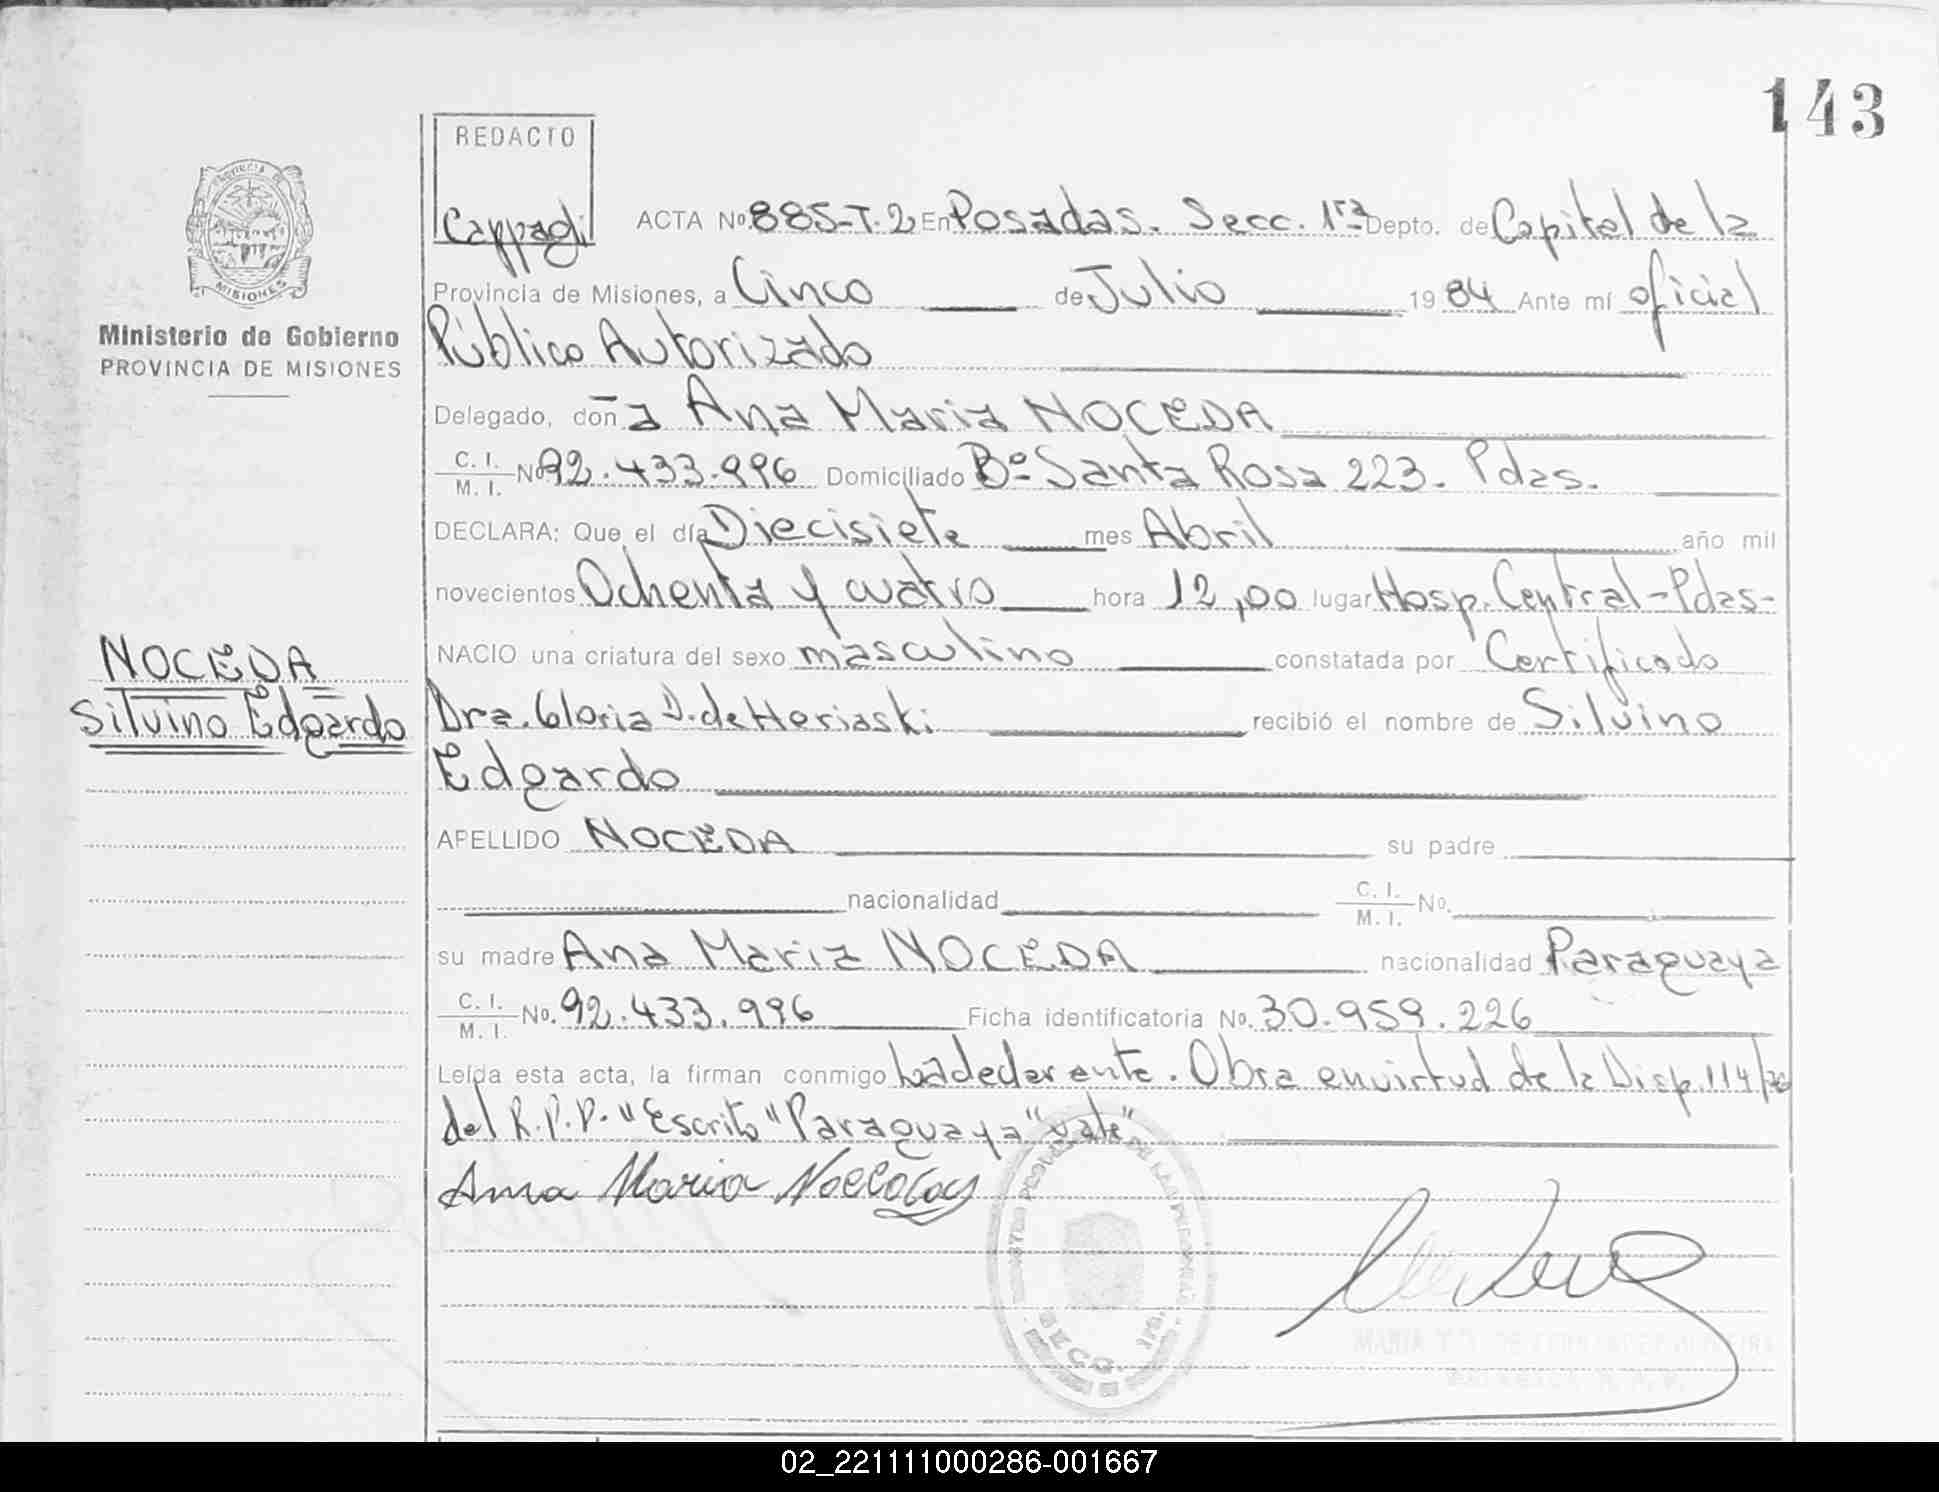 143
REDACTO
Cappagli
PROVINCIA DE
MISIONES
Ministerio de Gobierno
PROVINCIA DE MISIONES
ACTA Nº 885-T.2 En Posadas. Secc. 1ra Depto. de Capital de la
Provincia de Misiones, a Cinco de Julio 1984 Ante mí oficial
Público Autorizado
Delegado, doña Ana Maria NOCEDA
C. I. M. I. Nº 92.433.996 Domiciliado Bº Santa Rosa 223. Pdas.
DECLARA: Que el día Diecisiete mes Abril año mil
novecientos Ochenta y cuatro hora 12,00 lugar Hosp. Central-Pdas-
NACIO una criatura del sexo masculino constatada por Certificado
Dra. Gloria D. de Heriaski recibió el nombre de Silvino
Edgardo
NOCEDA
Silvino Edgardo
APELLIDO NOCEDA su padre
nacionalidad C. I. M. I. No.
su madre Ana Maria NOCEDA nacionalidad Paraguaya
C. I. M. I. No. 92.433.996 Ficha identificatoria No. 30.959.226
Leída esta acta, la firman conmigo La declarante. Obra en virtud de la Disp. 114/
del R.P.P. "Escrito" Paraguaya "vale"
Ana Maria
02_221111000286-001667